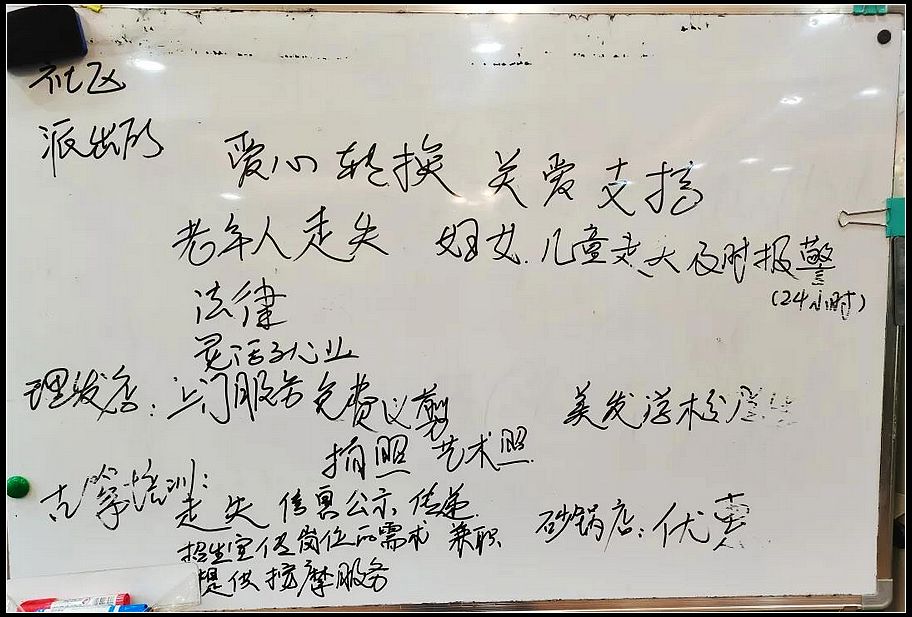 社区
派出所
爱心 转换 关爱 支持
老年人走失 妇女.儿童走失及时报警
(24小时)
法律
灵活就业
理发店：上门服务免费义剪 美发学校
拍照 艺术照
古筝培训：
走失 信息公示 传递
招生宣传岗位的需求 兼职 砂锅店：优惠
提供按摩服务